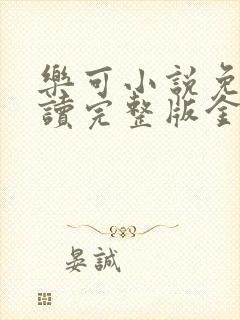 樂可小說免
讀完整版全
晏誠